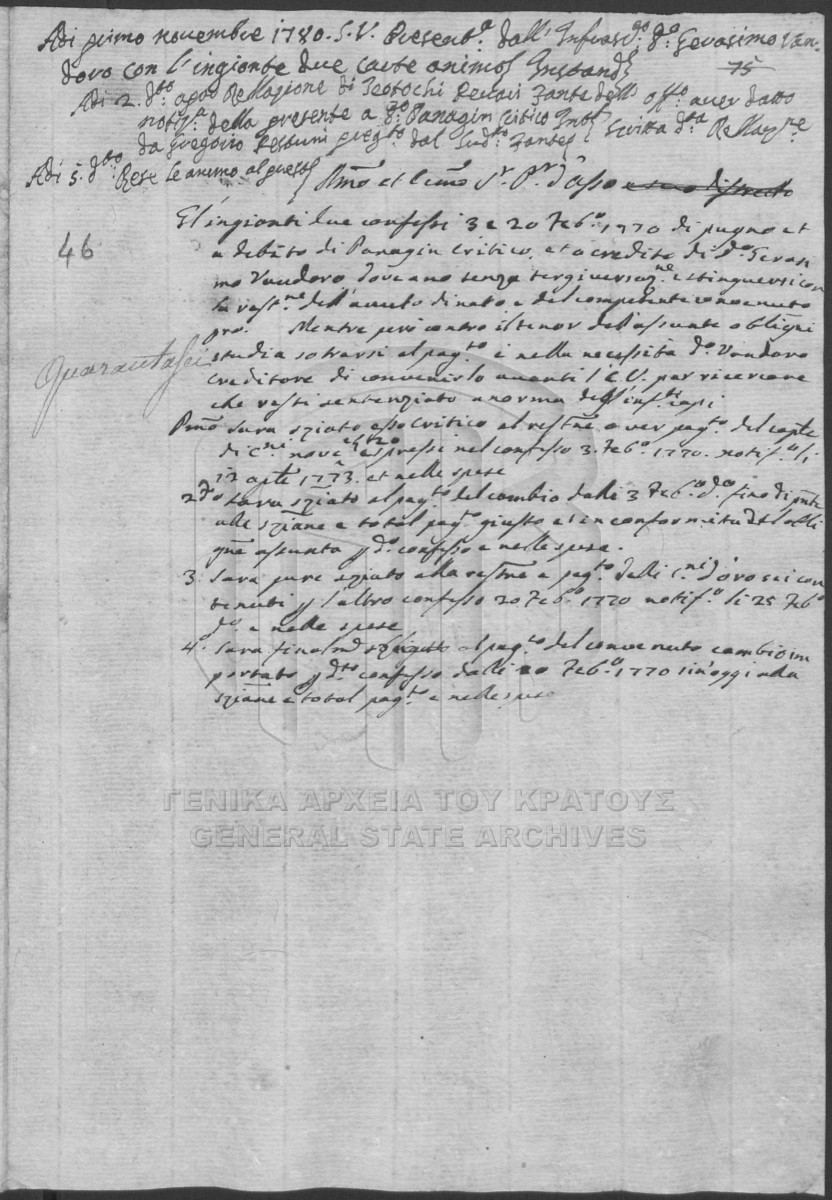 Adi primo novembre 1780. S. V. Presentª. dall' Infrascº. dº. Gerasimo Van-
doro con l'ingionte due carte animoſ Instandˢ
75
Adi 2. dtto apar Rellazione di Teotochi Fante dello offº. aver datto
notª. della presente a dº. Panagin Critico
da Gregorio pregto. dal Sudto. Fante scritta dta Rellazne
Adi 5. dtto Rese le animo al
Illmo et Sr. Pr. d'Asso
46
Gl'ingionti due confessi 3 e 20 Febº. 1770 di pugno et
a debito di Panagin Critico, et a credito di dº. Gerasi
mo Vandoro doveano senza tergiversazne estinguersi con
la restne dell'avuto dinaro e del competente convenuto
pro. Mentre però contro il tenor dell'assunte obligni
studia sotrarsi al pagto. è nella necessità dº. Vandoro
Quarantasei
creditore di convenirlo avanti l'E. V. per ricercare
che resti sentenziato a norma dell'infrti capi
Pmo Sara sziato esso Critico al restne o ver pagto. del capte
di Cni nove espressi nel confesso 3. Febº. 1770. notifº. li
12 aple 1773. et nelle spese
2do Sara sziato al pagto. del cambio dalli 3 Febº. dº. fino di pnte
alle sziane e total pagº. giusto et in conformità dell'obli
gne assunta p dº. confesso e nelle spese.
3. Sara pure sziato alla restne e pagto. delli Cni d'oro sei con
tenuti p l'altro confesso 20 Febº. 1770 notifº. li 25 Febº.
dº. e nelle spese
4. Sara finalmte al pagto del convenuto cambio im
portato p dtto confesso dalli 20 Febº. 1770 sin'oggi alla
sziane e total pagto. e nelle spese
ΓΕΝΙΚΑ ΑΡΧΕΙΑ ΤΟΥ ΚΡΑΤΟΥΣ
GENERAL STATE ARCHIVES